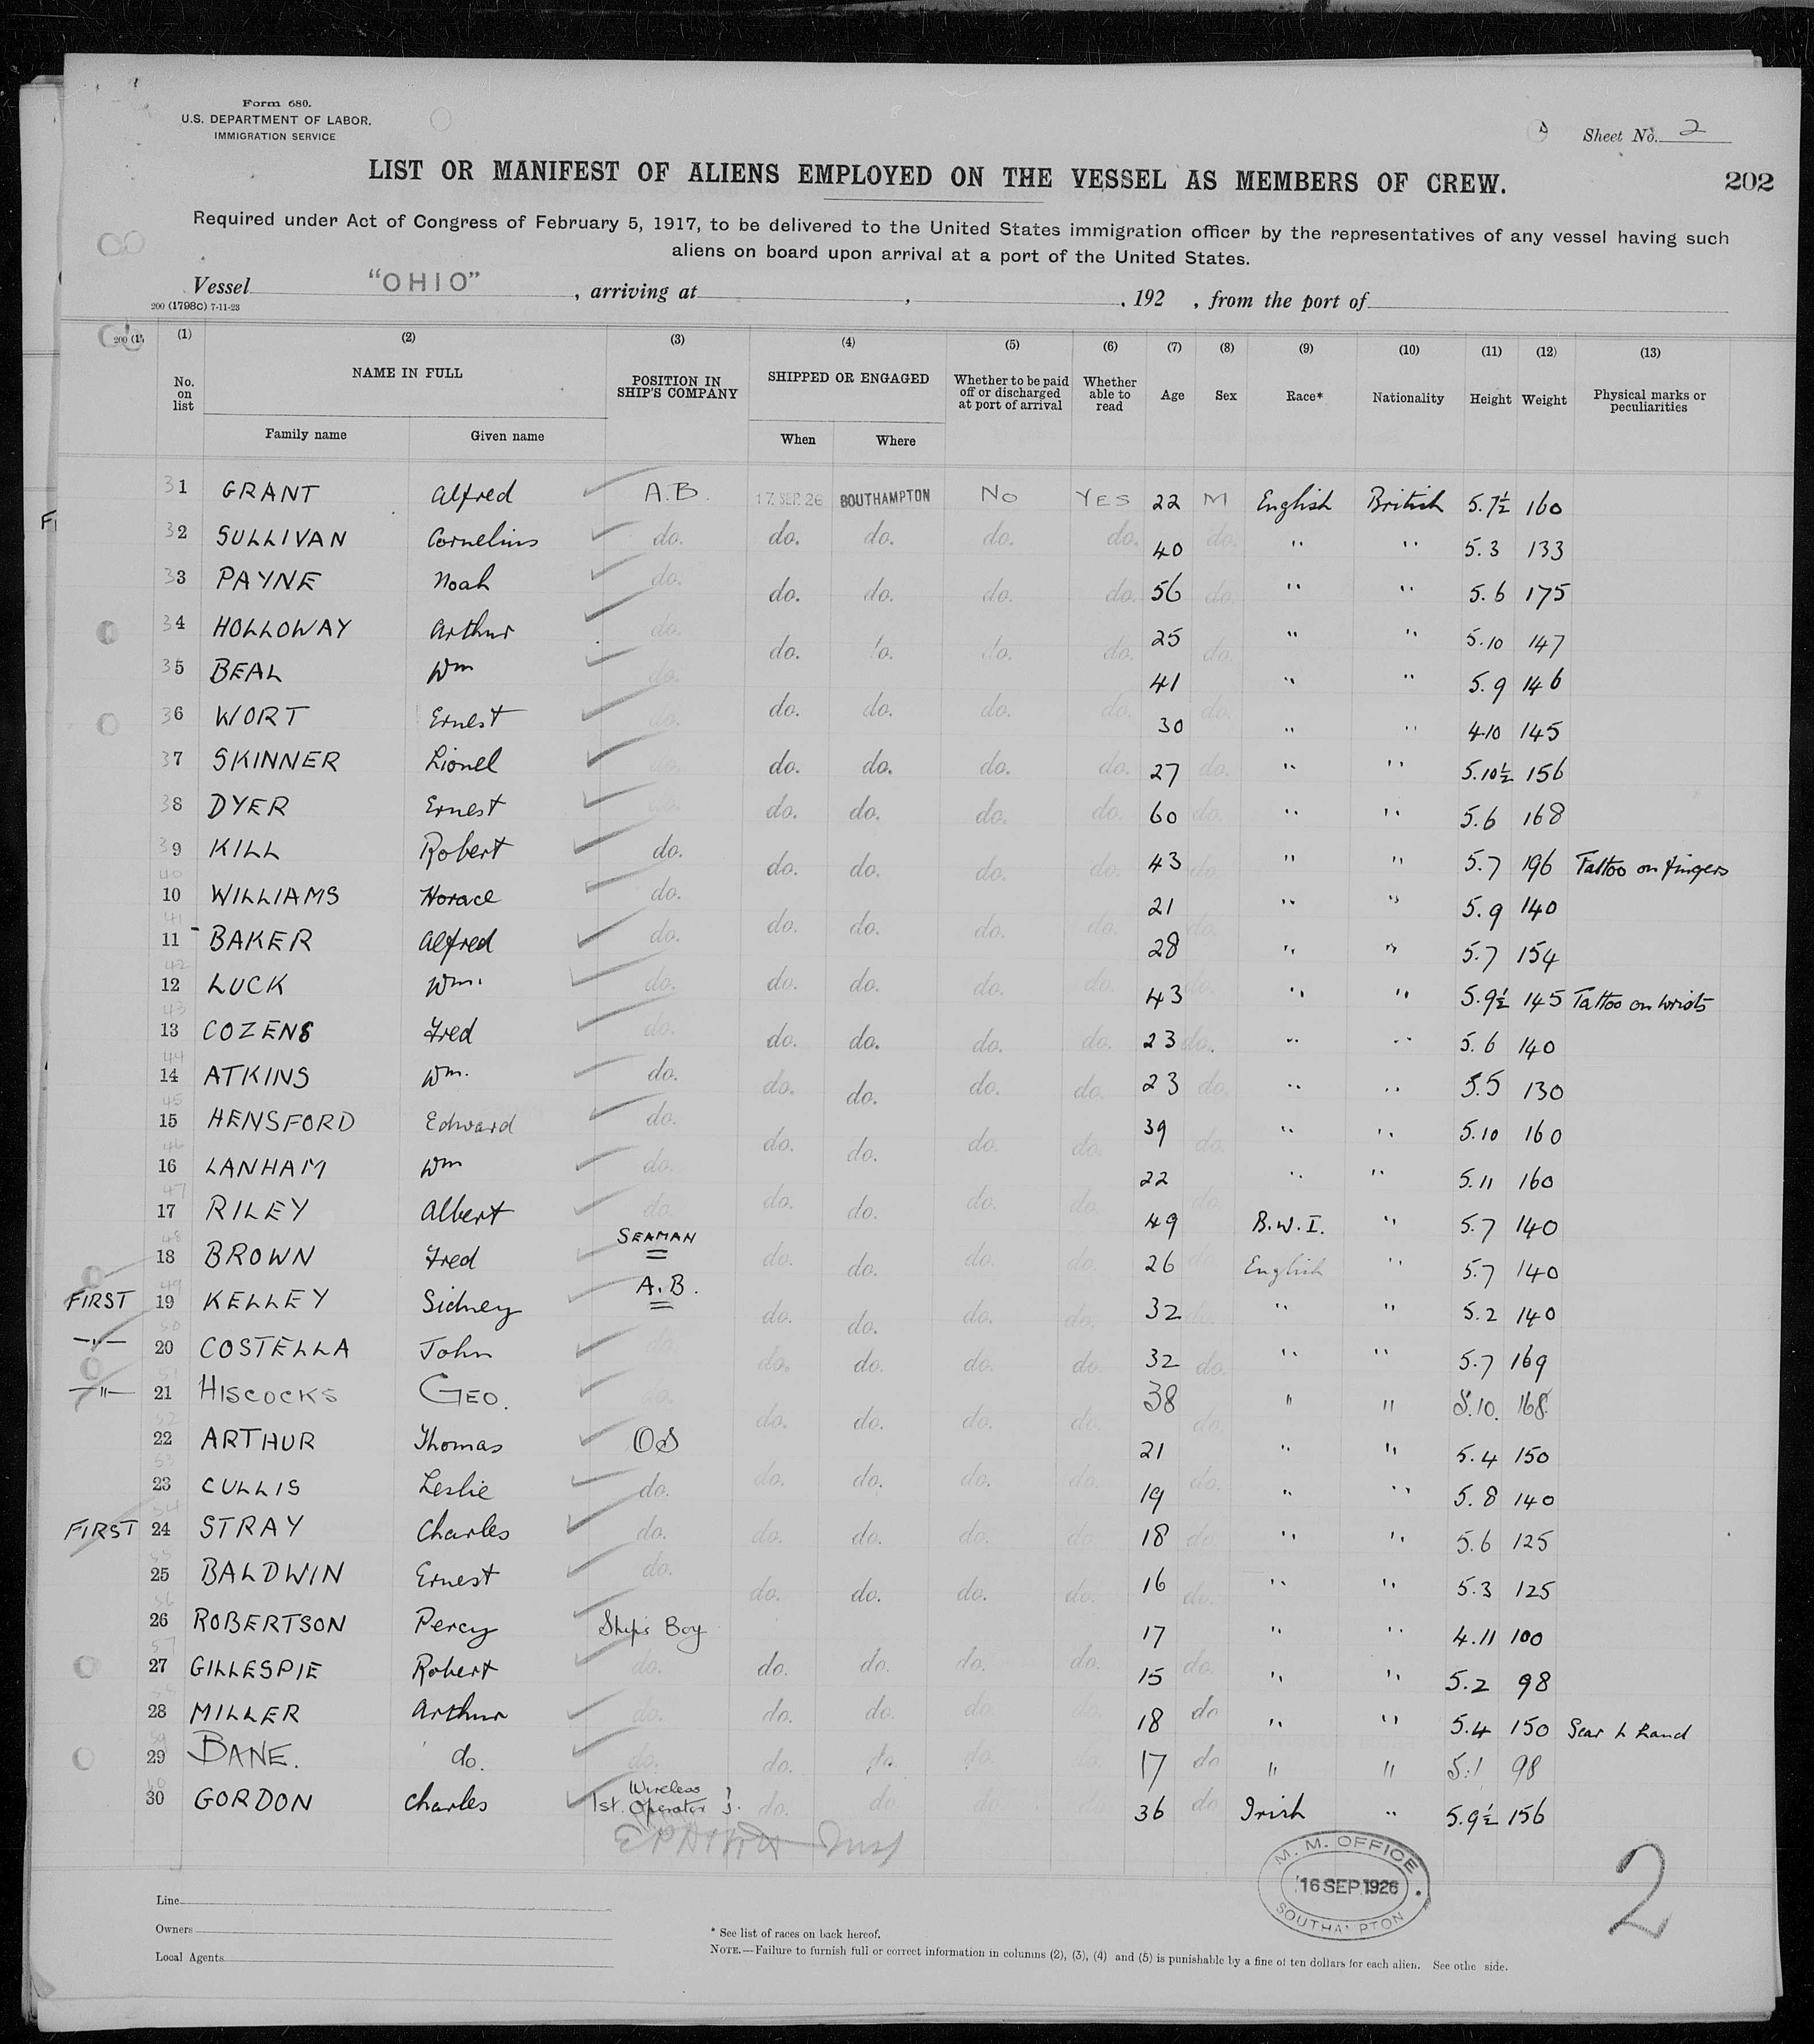 Form 680.
U.S. DEPARTMENT OF LABOR.
IMMIGRATION SERVICE
Sheet No. 2
LIST OR MANIFEST OF ALIENS EMPLOYED ON THE VESSEL AS MEMBERS OF CREW.
202
Required under Act of Congress of February 5, 1917, to be delivered to the United States immigration officer by the representatives of any vessel having such
aliens on board upon arrival at a port of the United States.
Vessel "OHIO" , arriving at , , 192 , from the port of
200 (1798C) 7-11-23
200 (1
(1) (2) (3) (4) (5) (6) (7) (8) (9) (10) (11) (12) (13)
No. on list NAME IN FULL POSITION IN SHIP'S COMPANY SHIPPED OR ENGAGED Whether to be paid off or discharged at port of arrival Whether able to read Age Sex Race* Nationality Height Weight Physical marks or peculiarities
Family name Given name When Where
31 GRANT Alfred A.B. 17 SEP. 26 SOUTHAMPTON No YES 22 M English British 5.7½ 160
32 SULLIVAN Cornelius do. do. do. do. do. 40 do. " " 5.3 133
33 PAYNE Noah do. do. do. do. do. 56 do. " " 5.6 175
34 HOLLOWAY Arthur do. do. do. do. do. 25 do. " " 5.10 147
35 BEAL Wm do. 41 " " 5.9 146
36 WORT Ernest do. do. do. do. do. 30 do. " " 4.10 145
37 SKINNER Lionel do. do. do. do. do. 27 do. " " 5.10½ 156
38 DYER Ernest do. do. do. do. do. 60 do. " " 5.6 168
39 KILL Robert do. do. do. do. do. 43 do. " " 5.7 196 Tattoo on fingers
40
10 WILLIAMS Horace do. 21 " " 5.9 140
41
11 BAKER Alfred do. do. do. do. do. 28 do. " " 5.7 154
42
12 LUCK Wm. do. do. do. do. do. 43 do. " " 5.9½ 145 Tattoo on wrists
43
13 COZENS Fred do. do. do. do. do. 23 do. " " 5.6 140
44
14 ATKINS Wm. do. do. do. do. do. 23 do. " " 5.5 130
45
15 HENSFORD Edward do. do. do. do. do. 39 do. " " 5.10 160
46
16 LANHAM Wm do. 22 " " 5.11 160
47
17 RILEY Albert do. do. do. do. do. 49 do. B.W.I. " 5.7 140
48
18 BROWN Fred SEAMAN do. do. do. do. 26 do. English " 5.7 140
49
FIRST 19 KELLEY Sidney A.B. do. do. do. do. 32 do. " " 5.2 140
50
—"— 20 COSTELLA John do. do. do. do. do. 32 do. " " 5.7 169
51
—"— 21 HISCOCKS GEO. do. do. do. do. do. 38 do. " " 5.10. 168.
52
22 ARTHUR Thomas OS 21 " " 5.4 150
53
23 CULLIS Leslie do. do. do. do. do. 19 do. " " 5.8 140
54
FIRST 24 STRAY Charles do. do. do. do. do. 18 do. " " 5.6 125
55
25 BALDWIN Ernest do. do. do. do. do. 16 do. " " 5.3 125
56
26 ROBERTSON Percy Ship's Boy 17 " " 4.11 100
57
27 GILLESPIE Robert do. do. do. do. do. 15 do. " " 5.2 98
58
28 MILLER Arthur do. do. do. do. do. 18 do " " 5.4 150 Scar L Hand
59
29 BANE. do. do. do. do. do. do. 17 do " " 5.1 98
60
30 GORDON Charles 1st. Wireless Operator }. do. do do do 36 do Irish " 5.9½ 156
M. M. OFFICE
16 SEP 1926
SOUTHAMPTON
2
Line
Owners
Local Agents
* See list of races on back hereof.
NOTE.—Failure to furnish full or correct information in columns (2), (3), (4) and (5) is punishable by a fine of ten dollars for each alien. See othe side.